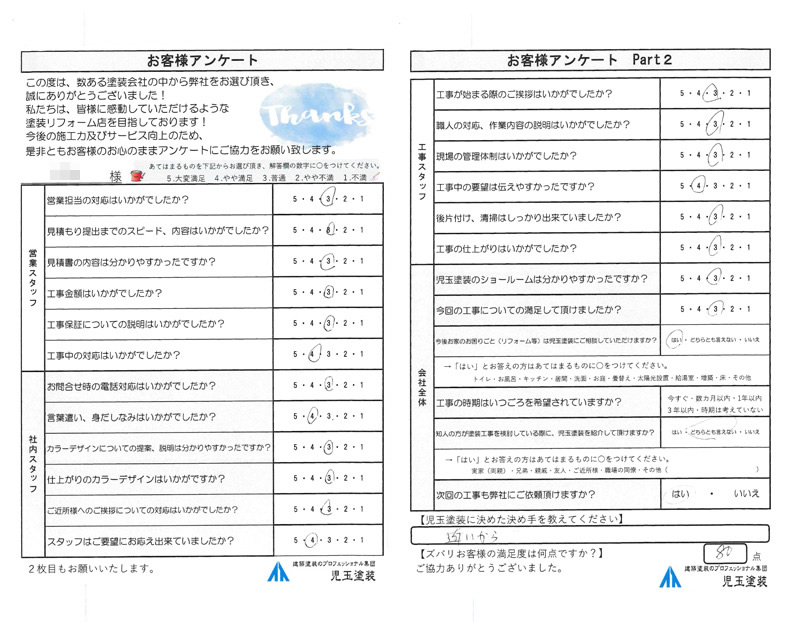 お客様アンケート
この度は、数ある塗装会社の中から弊社をお選び頂き、
誠にありがとうございました！
私たちは、皆様に感動していただけるような
塗装リフォーム店を目指しております！
今後の施工力及びサービス向上のため、
是非ともお客様のお心のままアンケートにご協力をお願い致します。
Thanks
あてはまるものを下記からお選び頂き、解答欄の数字に○をつけてください。
様
5.大変満足 4.やや満足 3.普通 2.やや不満 1.不満
営業スタッフ
営業担当の対応はいかがでしたか？ 5・4・3・2・1
見積もり提出までのスピード、内容はいかがでしたか？ 5・4・3・2・1
見積書の内容は分かりやすかったですか？ 5・4・3・2・1
工事金額はいかがでしたか？ 5・4・3・2・1
工事保証についての説明はいかがでしたか？ 5・4・3・2・1
工事中の対応はいかがでしたか？ 5・4・3・2・1
社内スタッフ
お問合せ時の電話対応はいかがでしたか？ 5・4・3・2・1
言葉遣い、身だしなみはいかがでしたか？ 5・4・3・2・1
カラーデザインについての提案、説明は分かりやすかったですか？ 5・4・3・2・1
仕上がりのカラーデザインはいかがですか？ 5・4・3・2・1
ご近所様へのご挨拶についての対応はいかがでしたか？ 5・4・3・2・1
スタッフはご要望にお応え出来ていましたか？ 5・4・3・2・1
2枚目もお願いいたします。
建築塗装のプロフェッショナル集団
児玉塗装
お客様アンケート Part2
工事スタッフ
工事が始まる際のご挨拶はいかがでしたか？ 5・4・3・2・1
職人の対応、作業内容の説明はいかがでしたか？ 5・4・3・2・1
現場の管理体制はいかがでしたか？ 5・4・3・2・1
工事中の要望は伝えやすかったですか？ 5・4・3・2・1
後片付け、清掃はしっかり出来ていましたか？ 5・4・3・2・1
工事の仕上がりはいかがでしたか？ 5・4・3・2・1
会社全体
児玉塗装のショールームは分かりやすかったですか？ 5・4・3・2・1
今回の工事についての満足して頂けましたか？ 5・4・3・2・1
今後お家のお困りごと（リフォーム等）は児玉塗装にご相談していただけますか？ はい・どちらとも言えない・いいえ
→「はい」とお答えの方はあてはまるものに○をつけてください。
トイレ・お風呂・キッチン・居間・洗面・お庭・畳替え・太陽光設置・給湯室・増築・床・その他
工事の時期はいつごろを希望されていますか？ 今すぐ・数カ月以内・1年以内
3年以内・時期は考えていない
知人の方が塗装工事を検討している際に、児玉塗装を紹介して頂けますか？ はい・どちらとも言えない・いいえ
→「はい」とお答えの方はあてはまるものに○をつけてください。
実家（両親）・兄弟・親戚・友人・ご近所様・職場の同僚・その他（ ）
次回の工事も弊社にご依頼頂けますか？ はい ・ いいえ
【児玉塗装に決めた決め手を教えてください】
近いから
【ズバリお客様の満足度は何点ですか？】 80 点
ご協力ありがとうございました。
建築塗装のプロフェッショナル集団
児玉塗装